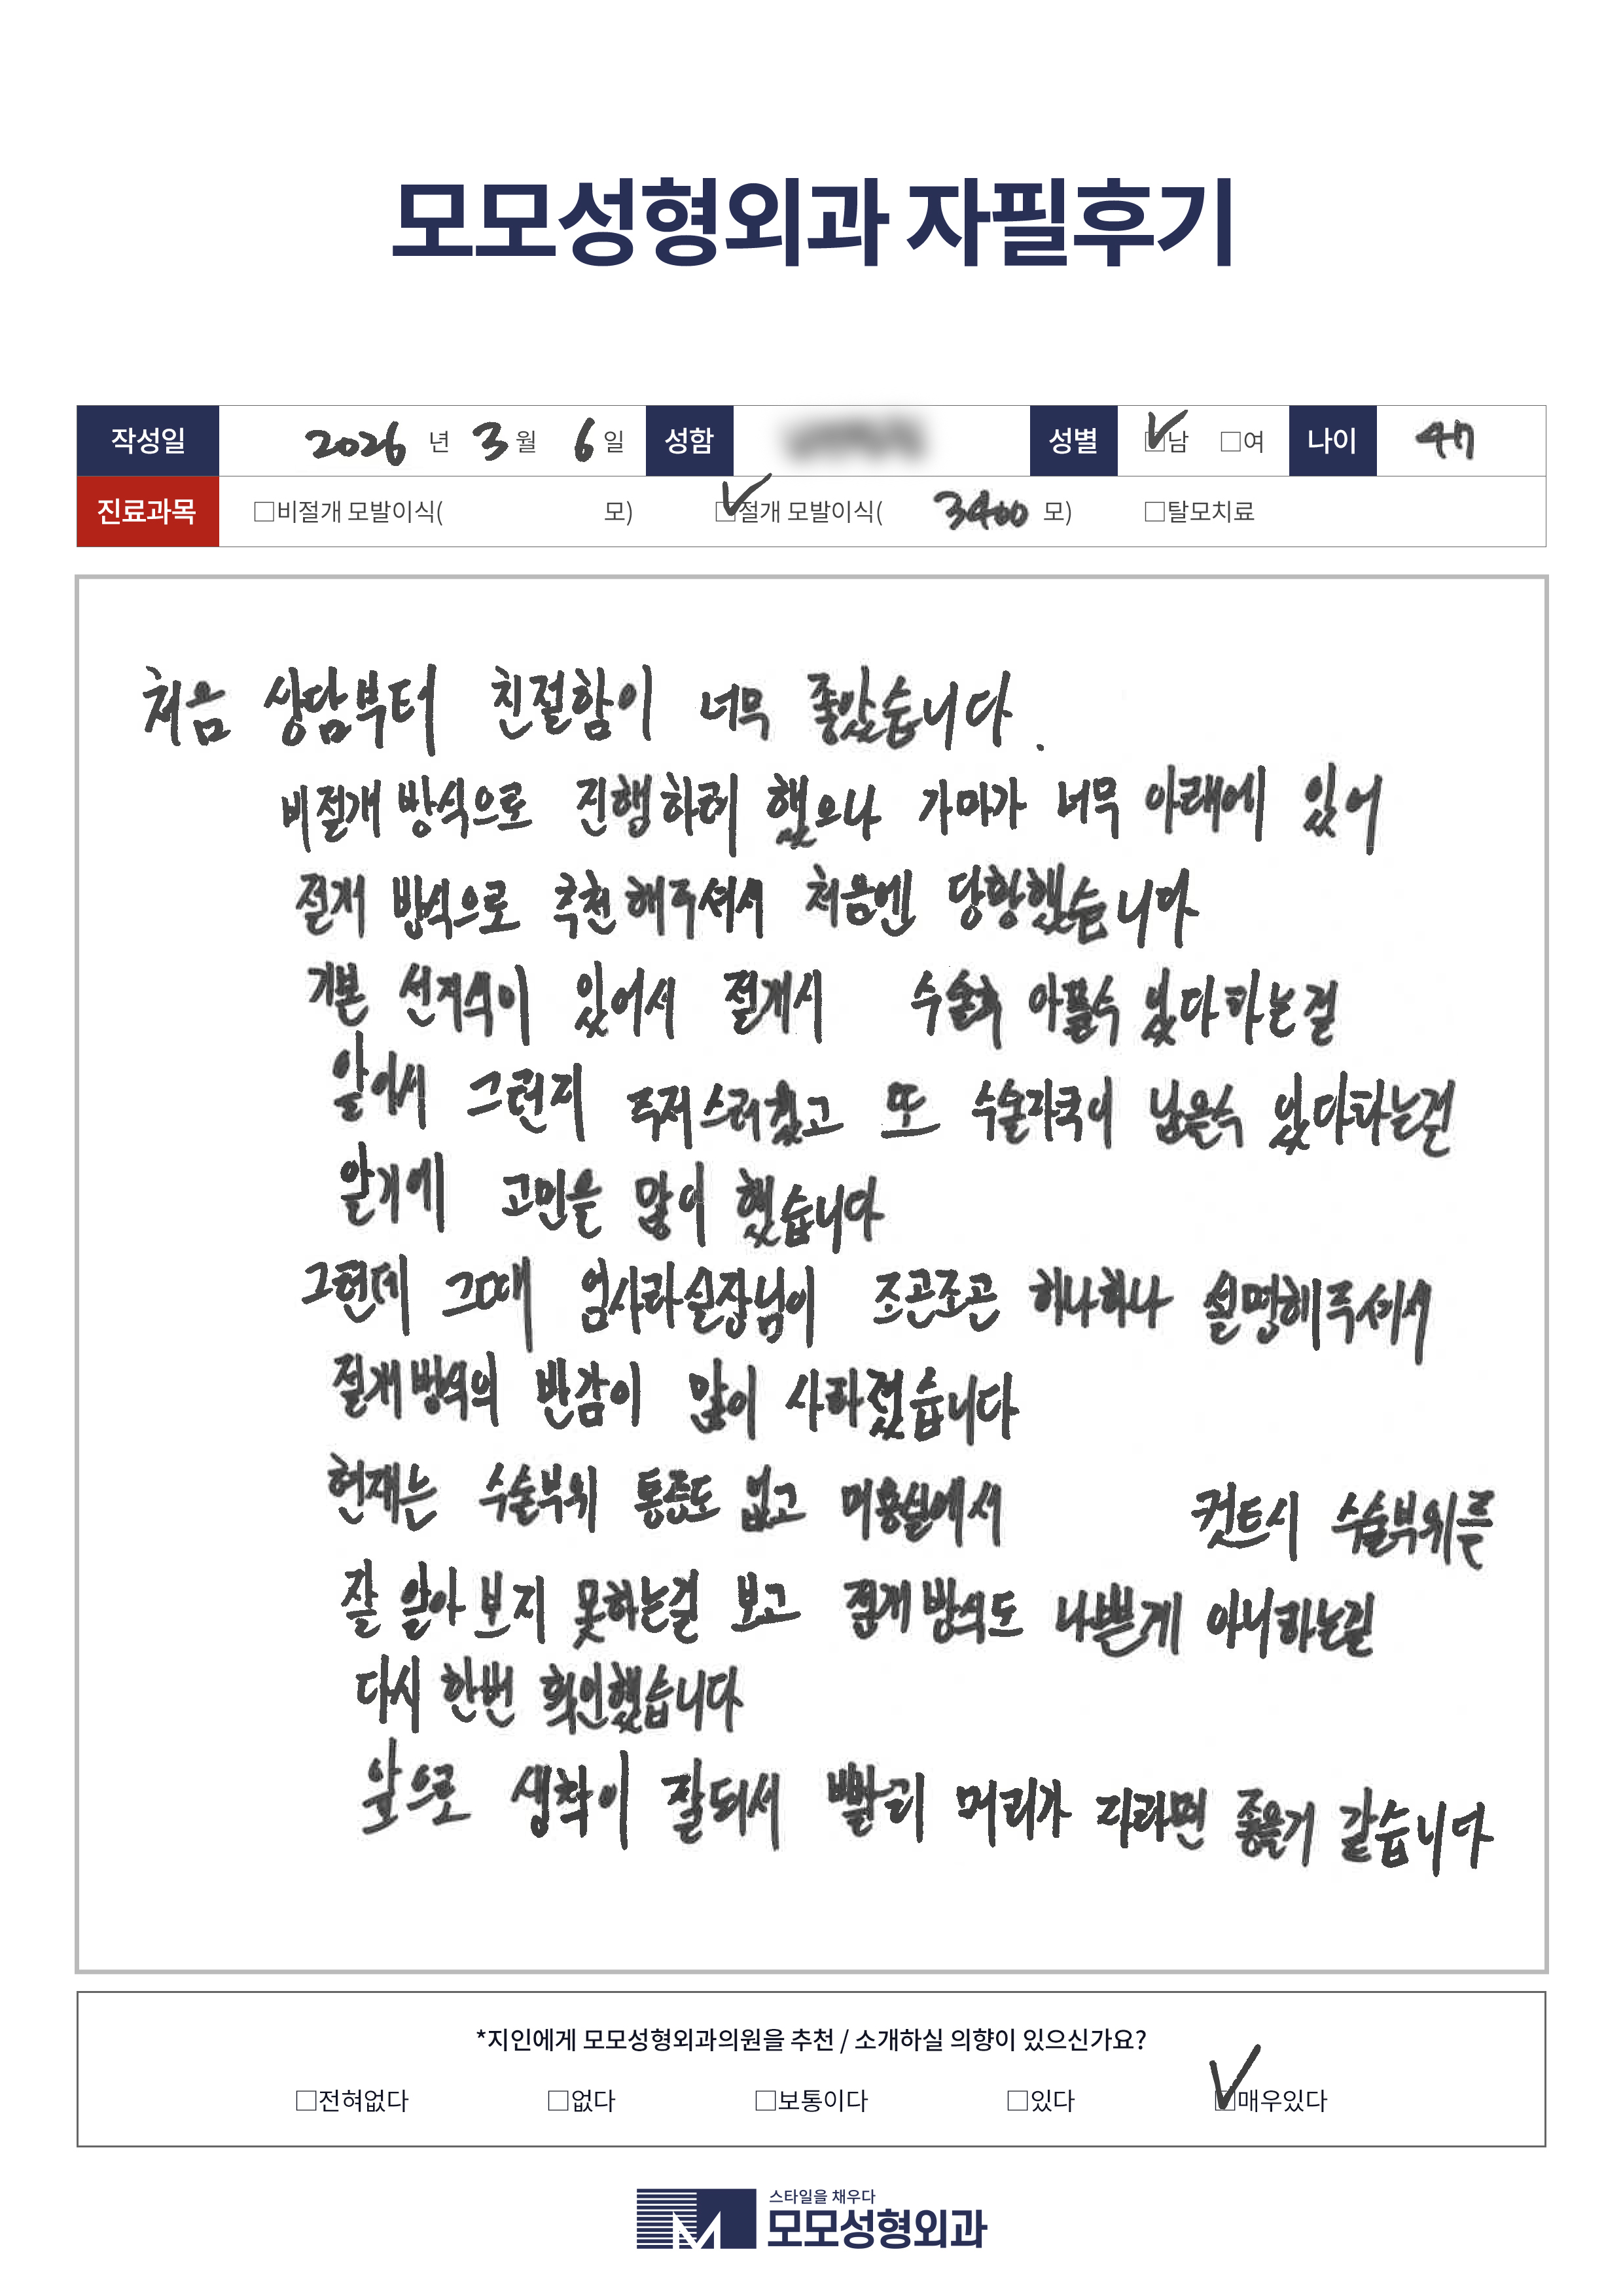 모모성형외과 자필후기
작성일 2026 년 3 월 6 일 성함 성별 ☑남 □여 나이 47
진료과목 □비절개 모발이식( 모) ☑절개 모발이식( 3400 모) □탈모치료
처음 상담부터 친절함이 너무 좋았습니다.
비절개 방식으로 진행하려 했으나 가마가 너무 아래에 있어
절개 방식으로 추천해주셔서 처음엔 당황했습니다
기본 선지식이 있어서 절개시 수술후 아플수 있다하는걸
알아서 그런지 주저스러웠고 또 수술자국이 남을수 있다하는걸
알기에 고민을 많이 했습니다
그런데 그때 엄사라실장님이 조곤조곤 하나하나 설명해주셔서
절개방식의 반감이 많이 사라졌습니다
현재는 수술부위 통증도 없고 미용실에서 컷트시 수술부위를
잘 알아 보지 못하는걸 보고 절개방식도 나쁜게 아니라는걸
다시 한번 확인했습니다
앞으로 생착이 잘되서 빨리 머리가 자라면 좋을거 같습니다
*지인에게 모모성형외과의원을 추천 / 소개하실 의향이 있으신가요?
□전혀없다 □없다 □보통이다 □있다 ☑매우있다
스타일을 채우다
모모성형외과